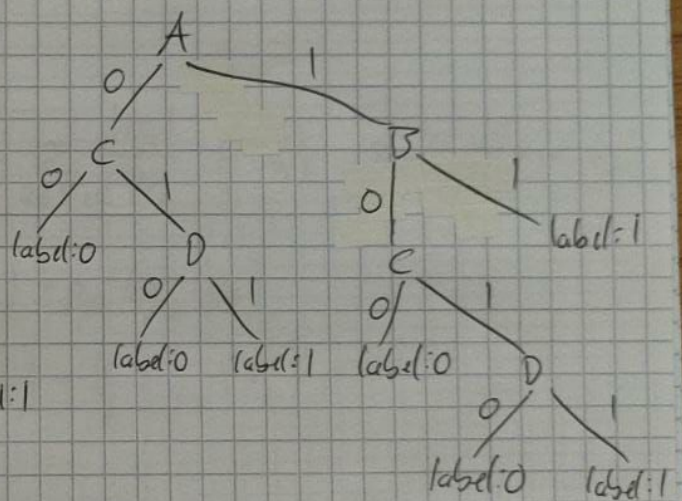 A
0 1
C B
0 1 0 1
label:0 D C label:1
0 1 0 1
label:0 label:1 label:0 D
l:1 0 1
label:0 label:1